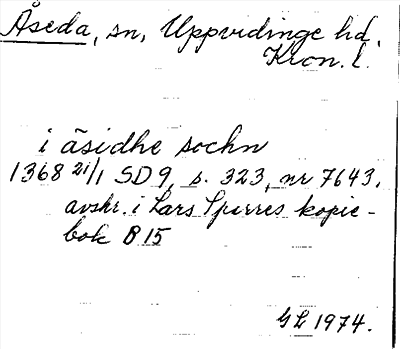 Åseda, sn, Uppvidinge hd,
Kron. l.
i åsidhe sochn
1368 21/1 SD9, s. 323, nr 7643,
avskr. i Lars Sparres kopie-
bok B 15
GL 1974.